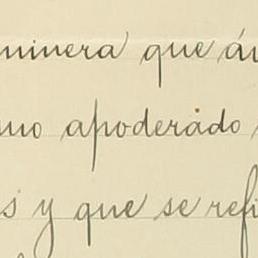 minera que
apoderado
y que se refi